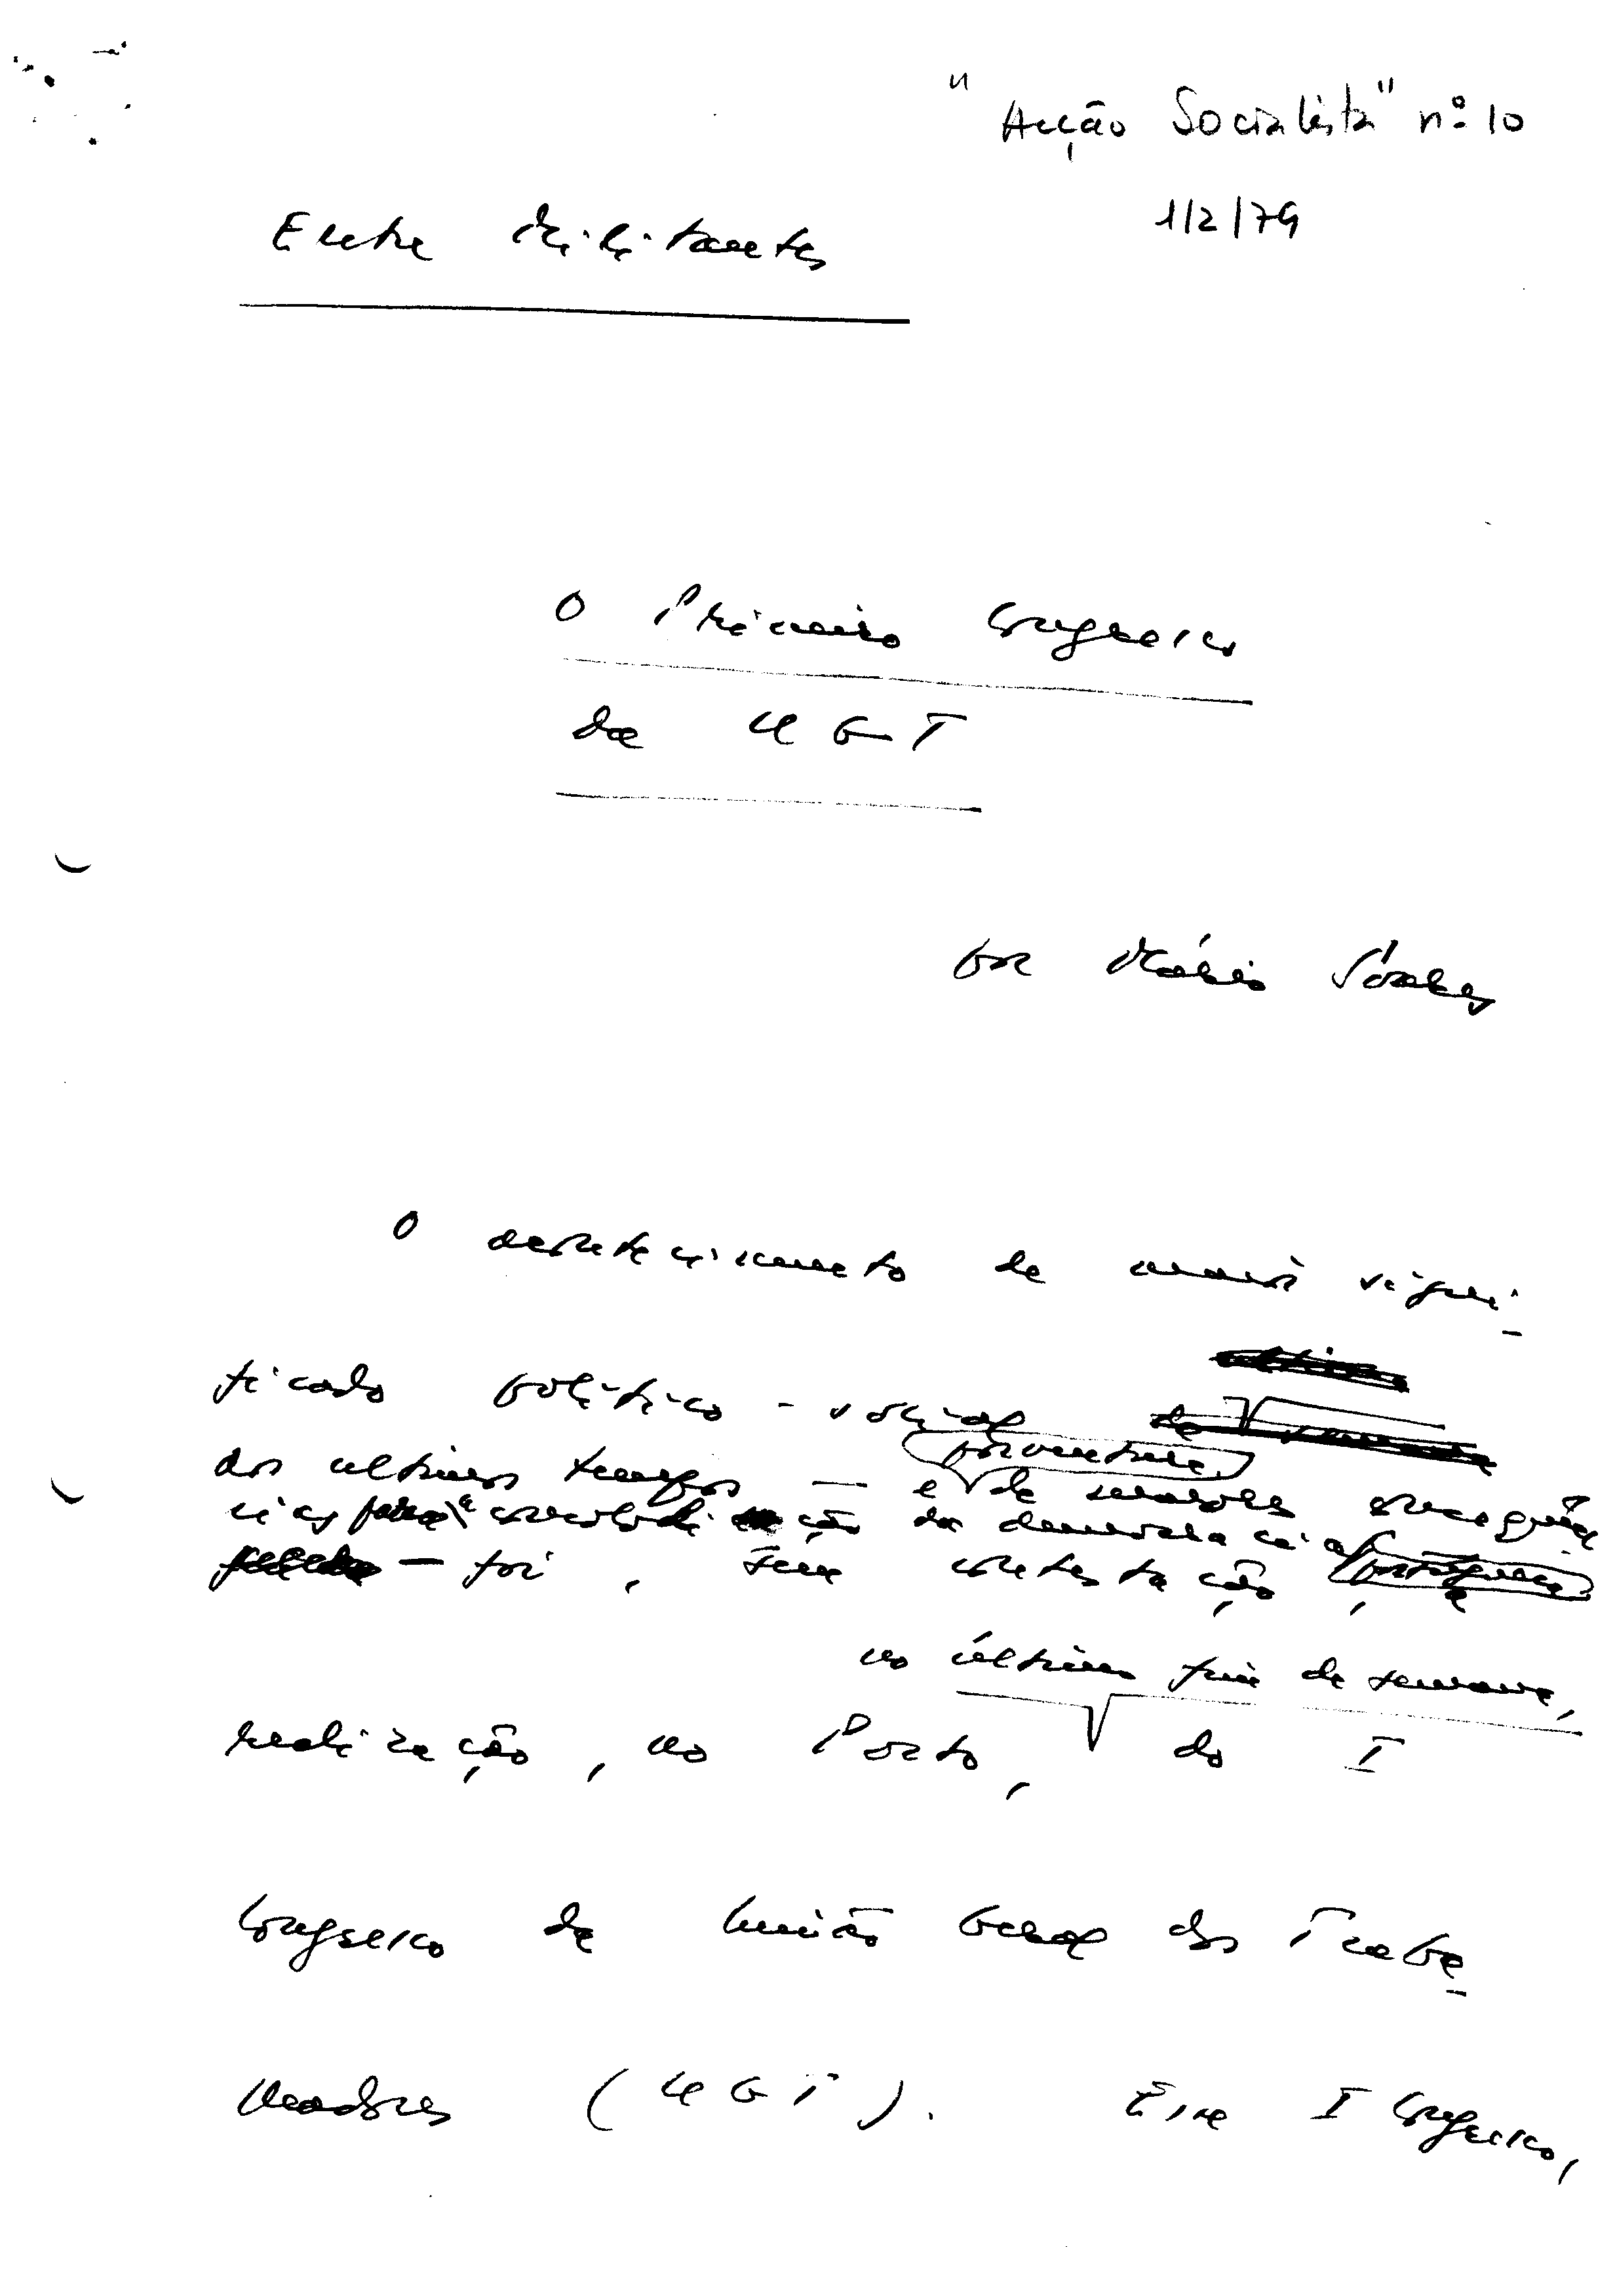 "Acção Socialista" nº 10
1/2/79
Entre Militantes
O Primeiro Congresso
da UGT
por Mário Soares
O acontecimento de maior signi-
ficado político-social
dos ultimos tempos — e porventura, de maiores consequên
cias para a consolidação da democracia portuguesa
— foi, sem contestação, a
no último fim de semana,
realização, no Porto, do I
Congresso da União Geral dos Traba-
lhadores (UGT). Esse I Congresso,